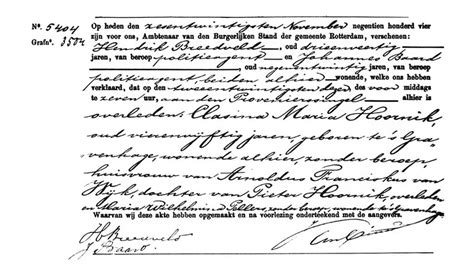 No. 5404
Grafn. 3582
Op heden den zesentwintigsten November negentien honderd vier
zijn voor ons, Ambtenaar van den Burgerlijken Stand der gemeente Rotterdam, verschenen:
Hendrik Breedveld, oud drieenveertig
jaren, van beroep politieagent en Johannes Baard
oud negenentwintig jaren, van beroep
politieagent, beiden alhier wonende, welke ons hebben
verklaard, dat op den tweeentwintigsten dezes des voor middags
te zeven uur, aan den Provenierssingel alhier is
overleden: Clasina Maria Hoornik,
oud vierenvijftig jaren, geboren te 's Gra-
venhage, wonende alhier, zonder beroep,
huisvrouw van Arnoldus Franciscus van
Wijk, dochter van Pieter Hoornik, overleden
en Maria Wilhelmina Pellers, zonder beroep, wonende te 's Gravenhage
Waarvan wij deze akte hebben opgemaakt en na voorlezing onderteekend met de aangevers.
H Breedveld
J Baard